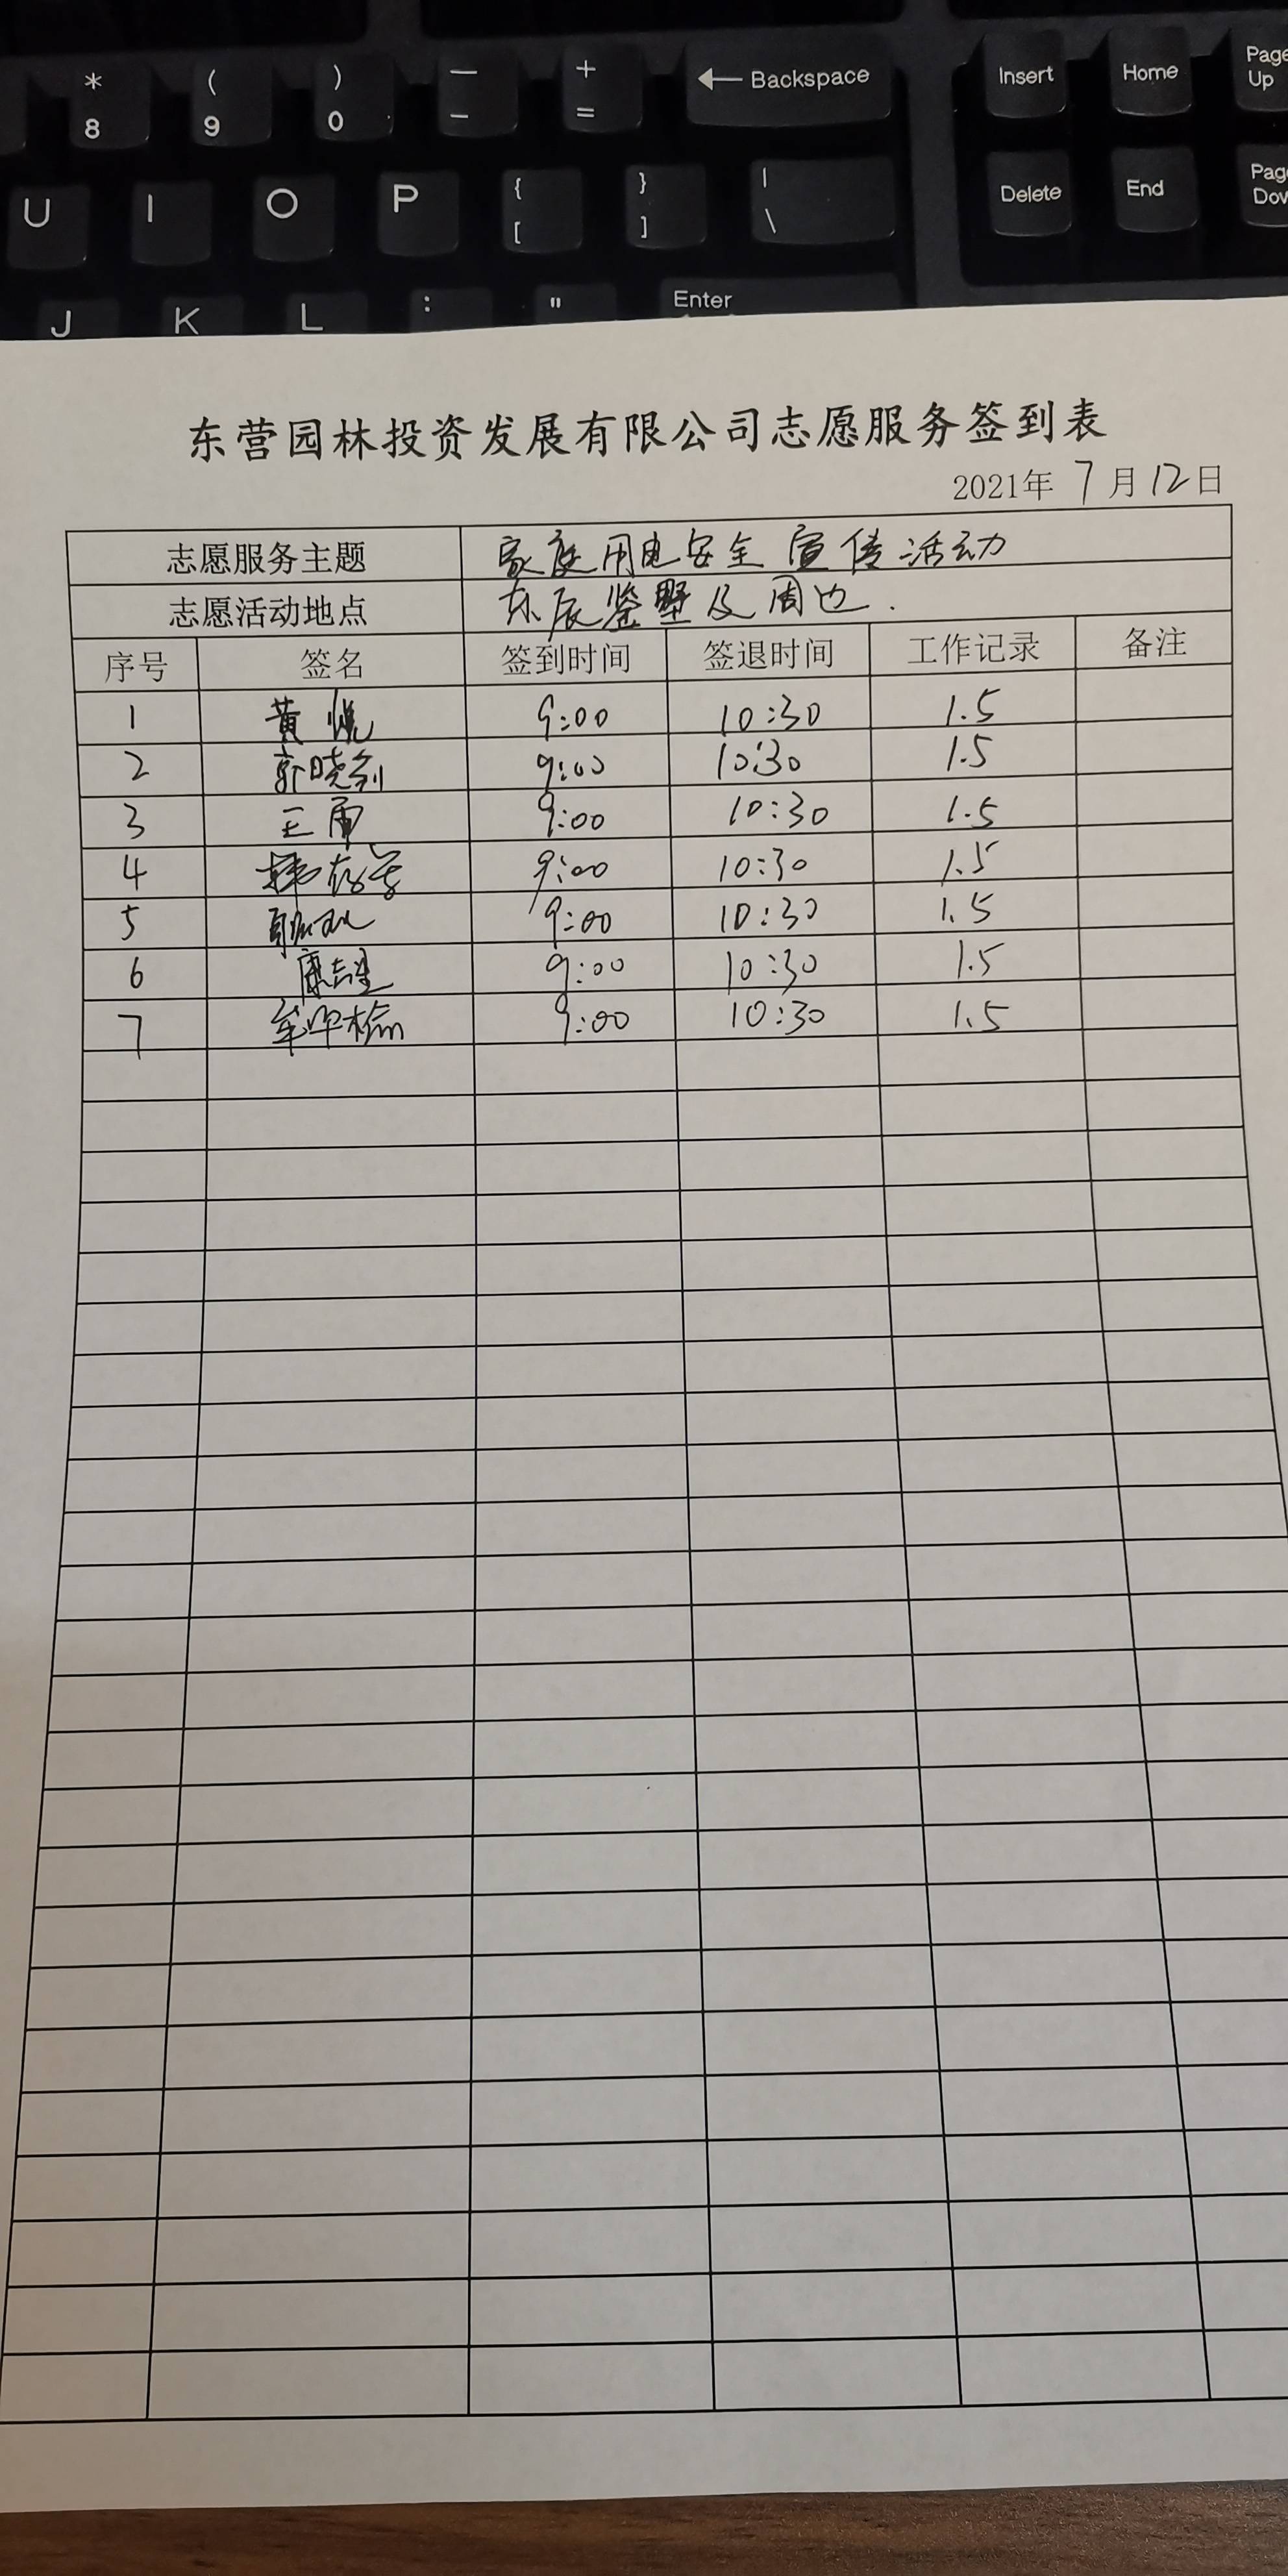 * ( ) — + ← Backspace Insert Home Page Up
8 9 0 - =
U I O P { [ } ] | \ Delete End
J K L : " Enter
东营园林投资发展有限公司志愿服务签到表
2021年 7月12日
志愿服务主题 家庭用电安全宣传活动
志愿活动地点 东辰鉴墅及周边.
序号 签名 签到时间 签退时间 工作记录 备注
1 黄悦 9:00 10:30 1.5
2 郭晓 9:00 10:30 1.5
3 王雷 9:00 10:30 1.5
4 9:00 10:30 1.5
5 9:00 10:30 1.5
6 康 9:00 10:30 1.5
7 9:00 10:30 1.5